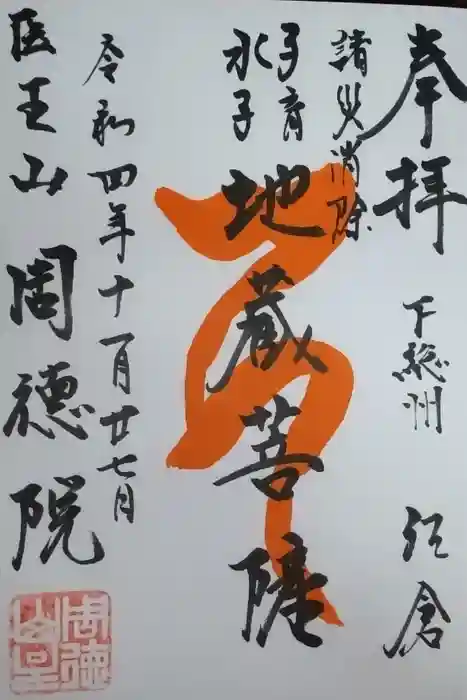 奉拝
下総州
江倉
諸災消除
子育
水子
地蔵菩薩
令和四年十一月廿七日
医王山
周徳院